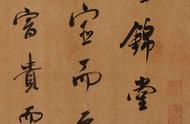 錦堂
宦而
富貴而